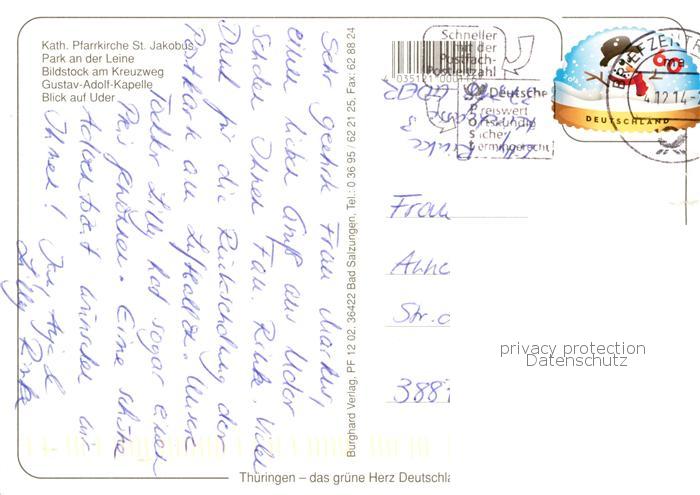 Kath. Pfarrkirche St. Jakobus
Park an der Leine
Bildstock am Kreuzweg
Gustav-Adolf-Kapelle
Blick auf Uder
Sehr geehrte Frau
einen lieben Gruß aus Uder
senden Ihnen Fam. Rinke. Vielen
Dank für die Rücksendung der
Postkarte am Luftballon. Unsere
Tochter Lilly hat sogar einen
Preis gewonnen. Eine schöne
Adventszeit wünschen wir
Ihnen!
Lilly Rinke
Burghard Verlag, PF 12 02, 36422 Bad Salzungen, Tel.: 0 36 95 / 62 21 25, Fax: 62 88 24
Schneller
mit der
Postfach-
Postleitzahl
Deutsche
Preiswert
Ortskundig
Sicher
Termingerecht
BRIEFZENTR
.12.14-
DEUTSCHLAND
Frau
Anne
Str. d
388
privacy protection
Datenschutz
Thüringen – das grüne Herz Deutschla